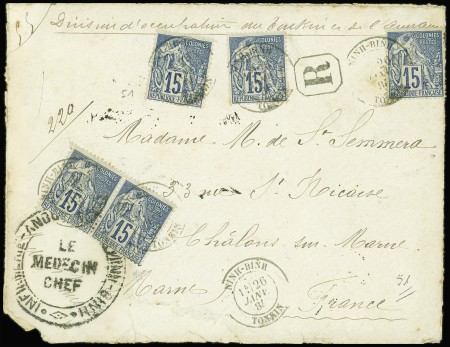 Division d'occupation du Tonkin et de l'Annam
COLONIES
15
COLONIES
15
R
NINH-BINH
TONKIN
COLONIES
15
RÉPUBLIQUE FRANÇAISE
220
Madame M. de St Semmera
NINH-BINH
15
15
53 rue St Nicaise
LE
MEDECIN
CHEF
INFIRMERIE
NINH-BINH
Châlons sur Marne
NINH-BINH
26
JANV
TONKIN
51
Marne
France